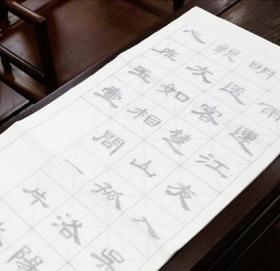 雨連江夜入吳
明送客楚山孤洛陽
親友如相問一片
心在玉壺